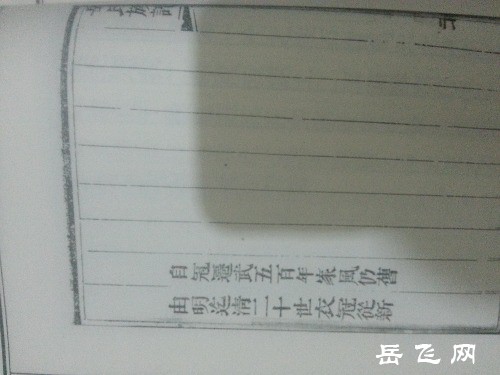 自冠遷武五百年家風仍舊
由明迄清二十世衣冠從新
岳飞网